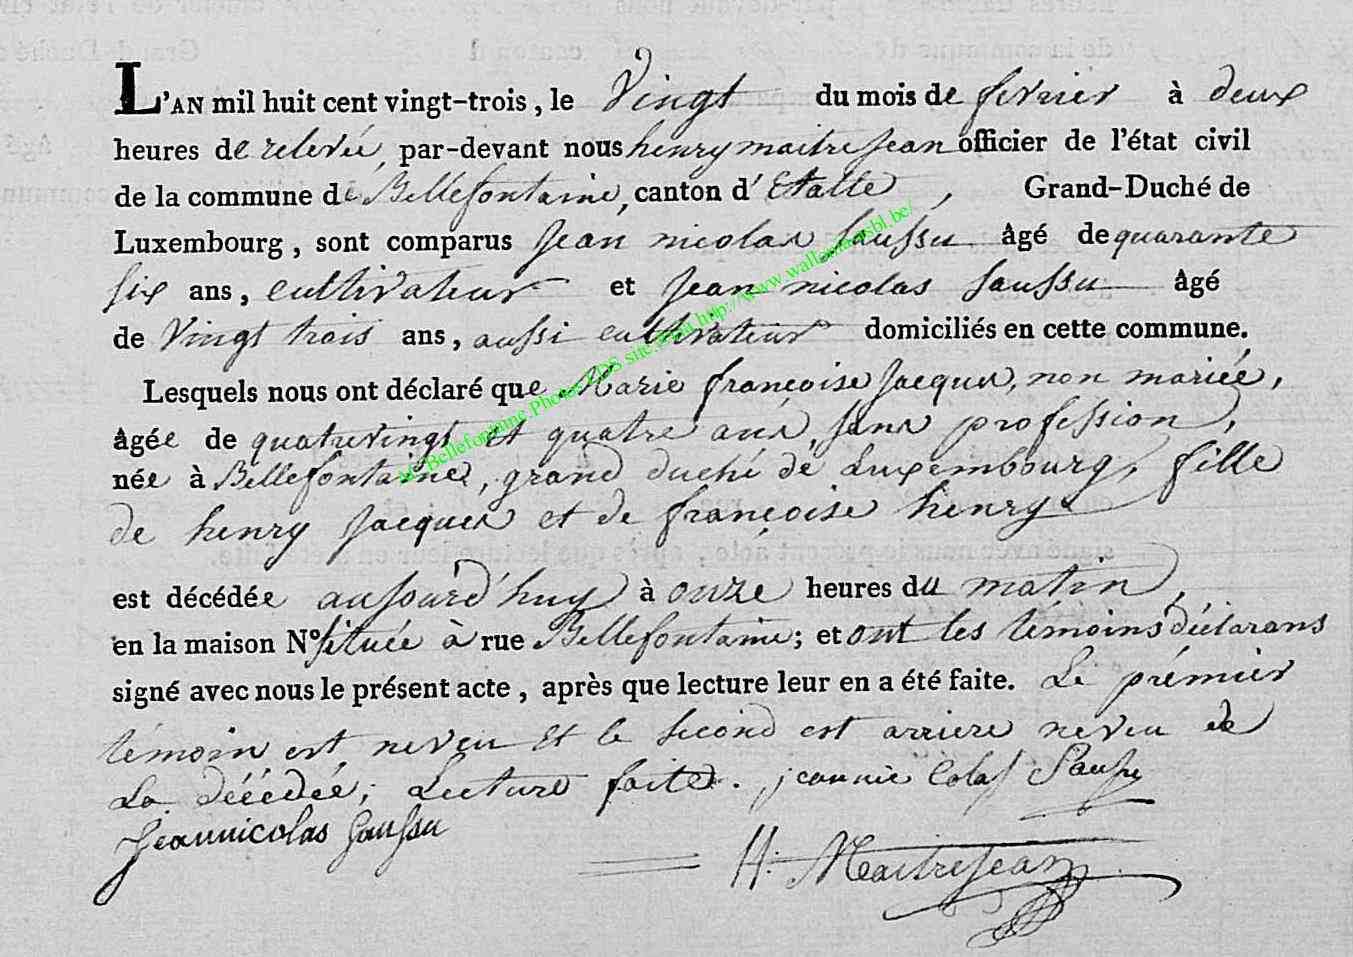 L'AN mil huit cent vingt-trois, le Vingt du mois de fevrier à deux
heures de relevée, par-devant nous henry maitrejean officier de l'état civil
de la commune de Bellefontaine, canton d'Etalle, Grand-Duché de
Luxembourg, sont comparus Jean nicolas Saussu âgé de quarante
six ans, cultivateur et Jean nicolas Saussu âgé
de Vingt trois ans, aussi cultivateur domiciliés en cette commune.
Lesquels nous ont déclaré que Marie françoise Jacques, non mariée,
âgée de quatrevingt et quatre ans, sans profession,
née à Bellefontaine, grand duché de Luxembourg, fille
de henry Jacques et de françoise henry
est décédée aujourd'huy à onze heures du matin,
en la maison N° située à rue Bellefontaine; et ont les témoins déclarans
signé avec nous le présent acte, après que lecture leur en a été faite. Le prémier
témoin est neveu et le second est arriere neveu de
La décédée; Lecture faite. jeannie Colas Sausu
Jeannicolas Saussu
H. Maitrejean
Bellefontaine Photos TDS site http://www.wallonica.be/